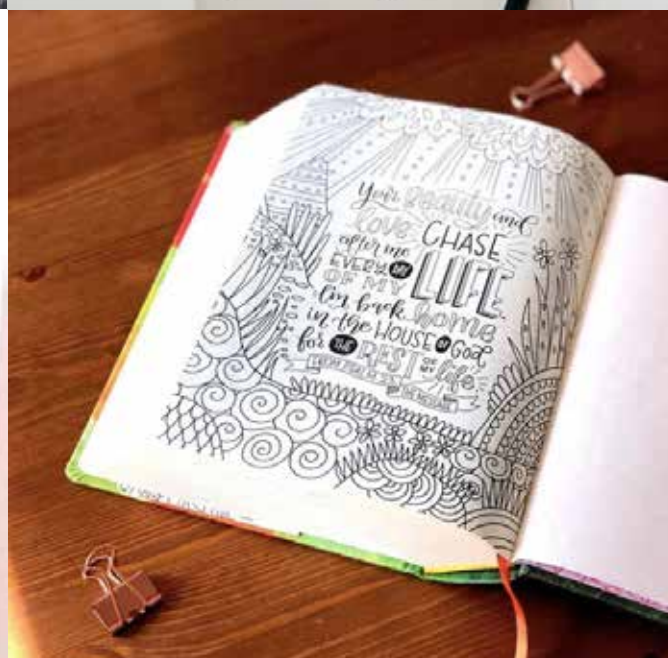 Your beauty and
love CHASE
after me
EVERY DAY
OF MY LIFE
I'm back home
in the HOUSE OF GOD
for THE REST OF MY life